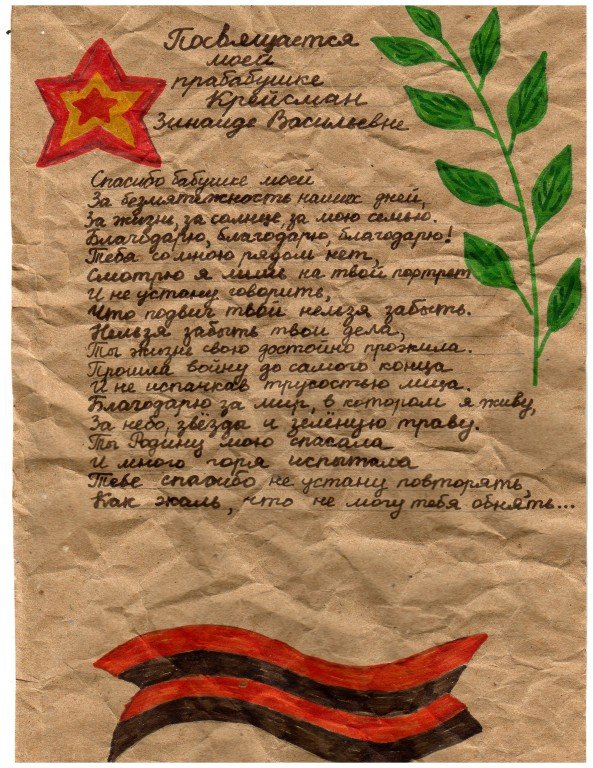 Посвящается
моей
прабабушке
Крейсман
Зинаиде Васильевне
Спасибо бабушке моей
За безмятежность наших дней,
За жизнь, за солнце, за мою семью.
Благодарю, благодарю, благодарю!
Тебя со мною рядом нет,
Смотрю я лишь на твой портрет
И не устану говорить,
Что подвиг твой нельзя забыть.
Нельзя забыть твои дела,
Ты жизнь свою достойно прожила.
Прошла войну до самого конца
И не испачкав трусостью лица.
Благодарю за мир, в котором я живу,
За небо, звёзды и зелёную траву.
Ты Родину мою спасала
И много горя испытала
Тебе спасибо не устану повторять,
Как жаль, что не могу тебя обнять...